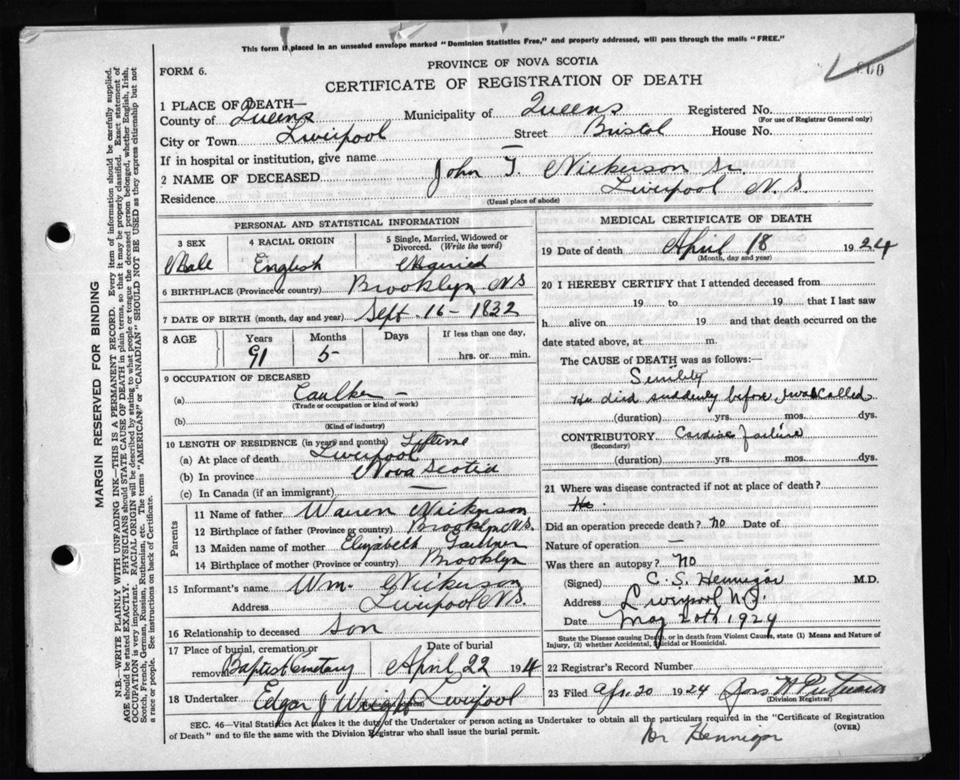 This form if placed in an unsealed envelope marked "Dominion Statistics Free," and properly addressed, will pass through the mails "FREE."
FORM 6.
PROVINCE OF NOVA SCOTIA
CERTIFICATE OF REGISTRATION OF DEATH
1 PLACE OF DEATH—
County of Queens Municipality of Queens Registered No.
(For use of Registrar General only)
City or Town Liverpool Street Bristol House No.
If in hospital or institution, give name —
2 NAME OF DECEASED John T. Nickerson Sr.
Residence Liverpool N.S.
(Usual place of abode)
PERSONAL AND STATISTICAL INFORMATION
3 SEX 4 RACIAL ORIGIN 5 Single, Married, Widowed or Divorced. (Write the word)
Male English Married
6 BIRTHPLACE (Province or country) Brooklyn NS
7 DATE OF BIRTH (month, day and year) Sept. 16 - 1832
8 AGE Years Months Days If less than one day,
91 5 hrs. or min.
9 OCCUPATION OF DECEASED
(a) Caulker —
(Trade or occupation or kind of work)
(b)
(Kind of industry)
10 LENGTH OF RESIDENCE (in years and months) Lifetime
(a) At place of death Liverpool
(b) In province Nova Scotia
(c) In Canada (if an immigrant) —
Parents
11 Name of father Warren Nickerson
12 Birthplace of father (Province or country) Brooklyn N.S.
13 Maiden name of mother Elizabeth
14 Birthplace of mother (Province or country) Brooklyn
15 Informant's name Wm. Nickerson
Address Liverpool N.S.
16 Relationship to deceased Son
17 Place of burial, cremation or removal Date of burial
Baptist Cemetary April 22 1924
18 Undertaker Edgar J Wright Liverpool
MEDICAL CERTIFICATE OF DEATH
19 Date of death April 18 1924
(Month, day and year)
20 I HEREBY CERTIFY that I attended deceased from
19 to 19 that I last saw
h alive on 19 and that death occurred on the
date stated above, at m.
The CAUSE of DEATH was as follows:
Senility
He died suddenly before I was called
(duration) yrs. mos. dys.
CONTRIBUTORY Cardiac failure
(Secondary)
(duration) yrs. mos. dys.
21 Where was disease contracted if not at place of death?
Did an operation precede death? no Date of
Nature of operation —
Was there an autopsy? No
(Signed) C. S. Hennigar M.D.
Address Liverpool N.S.
Date May 20th, 1924
State the Disease causing Death, or in death from Violent Causes, state (1) Means and Nature of Injury, (2) whether Accidental, Suicidal or Homicidal.
22 Registrar's Record Number
23 Filed Apr. 20 1924
(Division Registrar)
SEC. 46—Vital Statistics Act makes it the duty of the Undertaker or person acting as Undertaker to obtain all the particulars required in the "Certificate of Registration
of Death" and to file the same with the Division Registrar who shall issue the burial permit.
(OVER)
Dr Hennigar
MARGIN RESERVED FOR BINDING
N.B.—WRITE PLAINLY WITH UNFADING INK—THIS IS A PERMANENT RECORD. Every item of information should be carefully supplied.
AGE should be stated EXACTLY. PHYSICIANS should STATE CAUSE OF DEATH in plain terms, so that it may be properly classified. Exact statement of
OCCUPATION is very important. RACIAL ORIGIN will be described by stating to what people or tongue the deceased person belonged, whether English, Irish,
Scotch, French, German, Russian, Ruthenian, etc. The terms "AMERICAN" or "CANADIAN" SHOULD NOT BE USED as they express citizenship but not
a race or people. See instructions on back of Certificate.